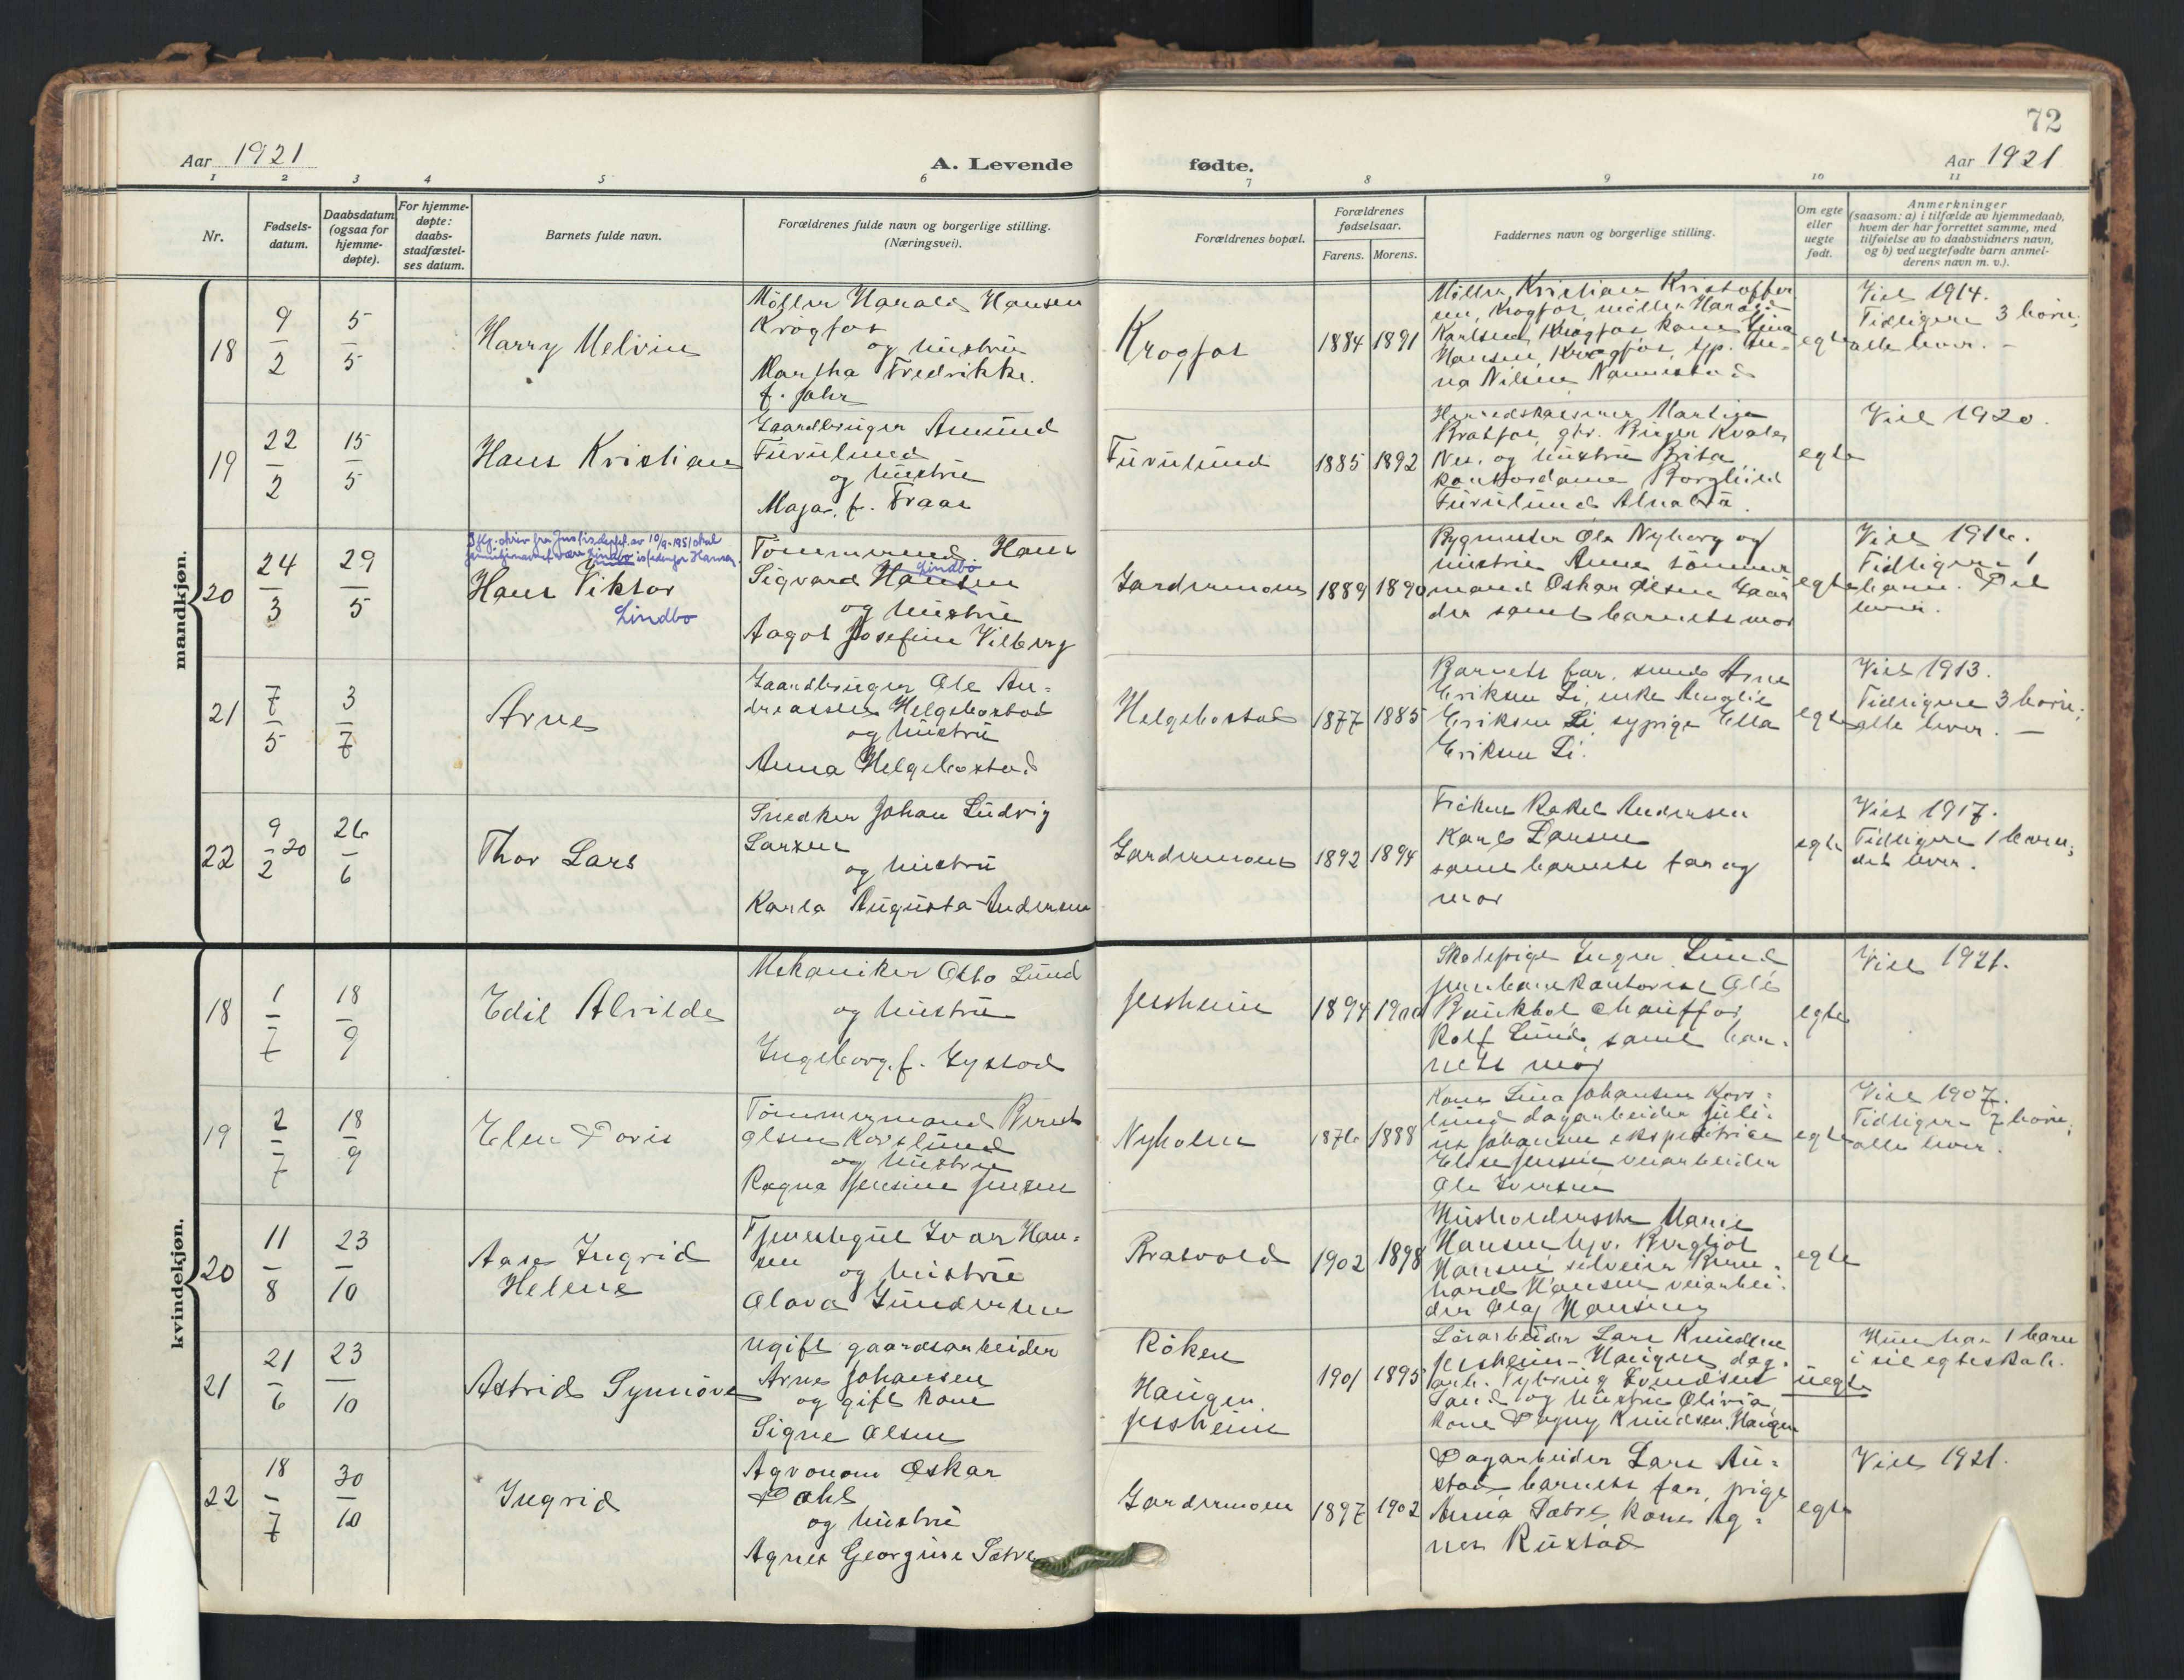 72
Aar 1921
A. Levende fødte.
Aar 1921
1 2 3 4 5 6 7 8 9 10 11
Nr.
Fødsels-
datum.
Daabsdatum
(ogsaa for
hjemme-
døpte).
For hjemme-
døpte:
daabs-
stadfæstel-
ses datum.
Barnets fulde navn.
Forældrenes fulde navn og borgerlige stilling.
(Næringsvei).
Forældrenes bopæl.
Forældrenes
fødselsaar.
Farens. Morens.
Faddernes navn og borgerlige stilling.
Om egte
eller
uegte
født.
Anmerkninger
(saasom: a) i tilfælde av hjemmedaab,
hvem der har forrettet samme, med
tilføielse av to daabsvidners navn,
og b) ved uegtefødte barn anmel-
derens navn m. v.).
mandkjøn.
18
9/2
5/5
Harry Melvin
Møller Harald Hansen
Krogfos
og hustru
Martha Fredrikke
f. Jahr
Krogfos
1884 1891
Møller Kristian Kristoffer
sen, Krogfos, møller Harald
Karlsen, Krogfos kone Lina
Hansen, Krogfos,
na Nilsen Nannestad
egte
Viet 1914.
Tidligere 3 børn;
alle lever. -
19
22/2
15/5
Hans Kristian
Gaardbruger Amund
Furulund
og hustru
Maja, f. Traas
Furulund
1885 1892
Herredskasserer Martin
Bratfos, gbr. Birger Kvalen
Nes. og hustru Brita
kontordame Borghild
Furulund Alnabru.
egte
Viet 1920.
20
24/3
29/5
Iflg. skriv fra Justisdeptet. av 10/9-1951 skal
familienavnet være Lindbo istedenfor Hansen.
Hans Viktor
Lindbo
Tømmermand Hans
Lindbo
Sigvard Hansen
og hustru
Aagot Josefine Vilberg
Gardermoen
1889 1890
Bygmester Ole Nyborg og
hustru Anne tømmer
mand Oskar Olsen Gaar
der samt barnets mor
egte
Viet 1916.
Tidligere 1
barn. Det
lever.
21
7/5
3/7
Arne
Gaardbruger Ole An-
dreassen Helgebostad
og hustru
Anna Helgebostad
Helgebostad
1877 1885
Barnets far, smed Arne
Eriksen Li, enke Amalie
Eriksen Li, sypige Ella
Eriksen Li.
egte
Viet 1913.
Tidligere 3 børn;
alle lever. -
22
9/2 20
26/6
Thor Lars
Snedker Johan Ludvig
Larsen
og hustru
Karla Augusta Andersen
Gardermoen
1892 1894
Frøken Rakel Andersen
Karl Larsen
samt barnets far og
mor
egte
Viet 1917.
Tidligere 1 barn;
det lever.
kvindekjøn.
18
1/7
18/9
Edil Alvilde
Mekaniker Otto Lund
og hustru
Ingeborg, f. Gystad
Jessheim
1894 1900
Skolepige Inger Lund
jernbanekontorist Ole
chauffør
Rolf Lund, samt bar-
nets mor
egte
Viet 1921.
19
2/7
18/9
Elen Doris
Tømmermand Bernt
Olsen Korslund
og hustru
Ragna Jensine Jensen
Nyholm
1876 1888
Kone Lina Johansen Kors-
lund dagarbeider Juli-
us Johansen ekspeditrice
Else Jensen veiarbeider
Ole Iversen
egte
Viet 1907.
Tidligere 7 børn;
alle lever.
20
11/8
23/10
Aase Ingrid
Helene
Tjenestegut Ivar Han-
sen
og hustru
Olava Gundersen
Brasvold
1902 1898
Husholderske Marie
Hansen tjp. Bergljot
Hansen selveier Bern-
hard Hansen veiarbei-
der Olaf Hansen
egte
21
21/6
23/10
Astrid Synnøve
Ugift gaardsarbeider
Arne Johansen
og gift kone
Signe Olsen
Røken
Haugen,
Jessheim
1901 1895
Lars Knudsen
Jessheim-Haugen, dag-
arb. Svendsen
Sand og hustru Olivia,
kone Dagny Knudsen, Haugen
uegte
Hun har 1 barn
i sit egteskab.
22
18/7
30/10
Ingrid
Agronom Oskar
Dahl
og hustru
Agnes Georgine Sætre
Gardermoen
1897 1902
Dagarbeider Lars Au-
stad, barnets far, pige
Anna Sætre, kone Ag-
nes Rustad
egte
Viet 1921.